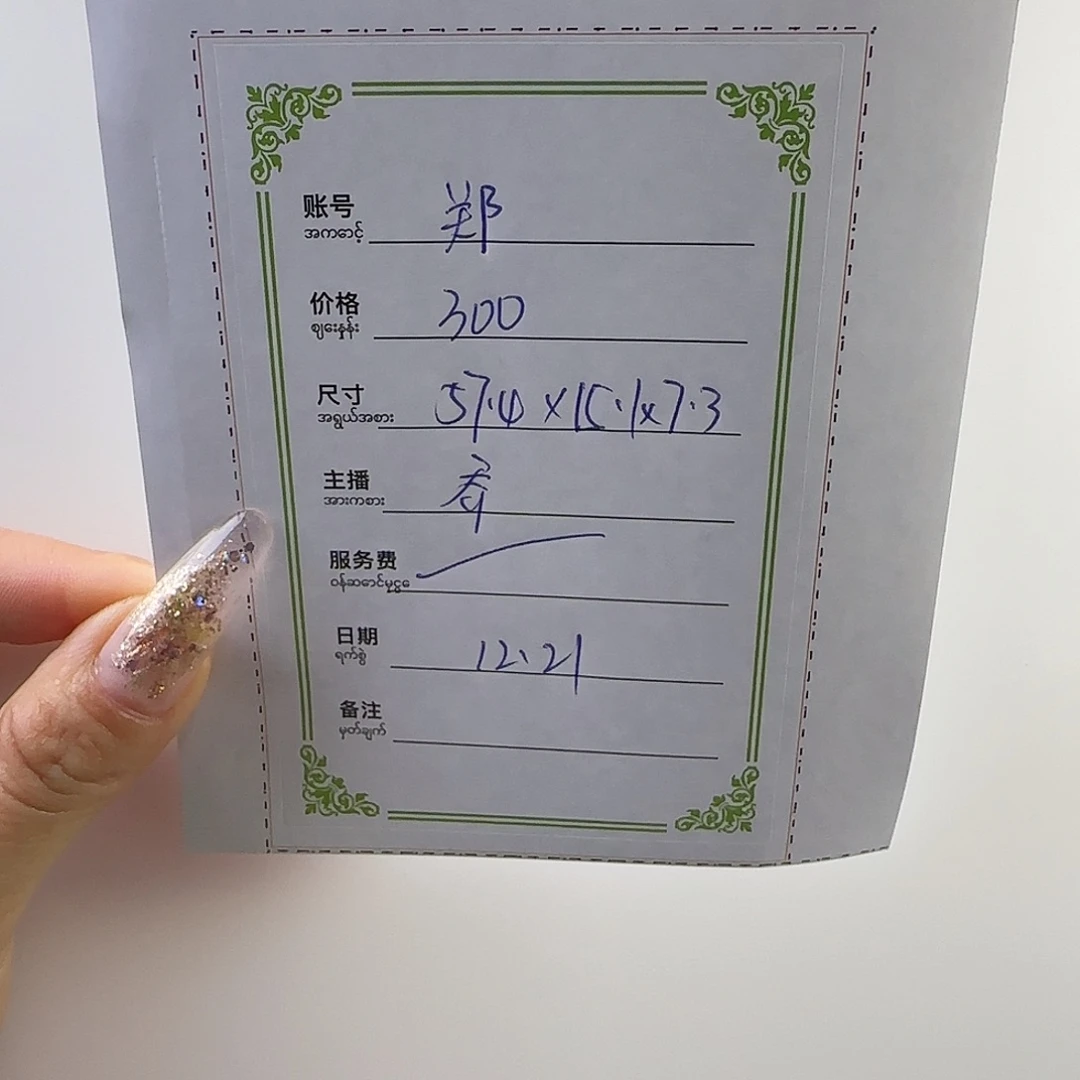 账号 郑
အကောင့်
价格 300
ဈေးနှုန်း
尺寸 57.4 x 15.1 x 7.3
အရွယ်အစား
主播 乔
အားကစား
服务费
ဝန်ဆောင်မှုငွေ
日期 12.21
ရက်စွဲ
备注
မှတ်ချက်